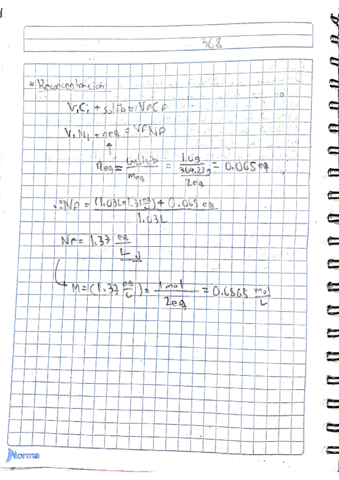 368
* Reconcentración
V₁C₁ + soluto = VFCF
V₁N₁ + neq = VFNF
↑
neq = = = 0.065 eq
2eq
NF = (1.03L × 1.31 eq/L) + 0.065 eq
1.03L
NF = 1.37 eq/L
M = (1.37 eq/L) = 1 mol / 2eq = 0.6865 mol/L
Norma